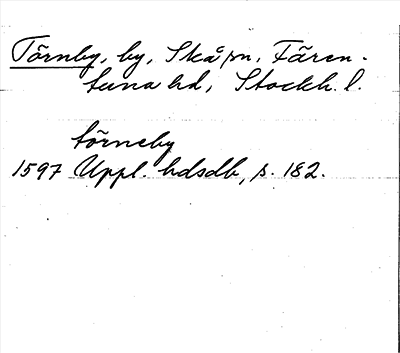 Törnby, by, Skå sn, Fären-
tuna hd, Stockh. l.
törneby
1597 Uppl. hdsdb, s. 182.